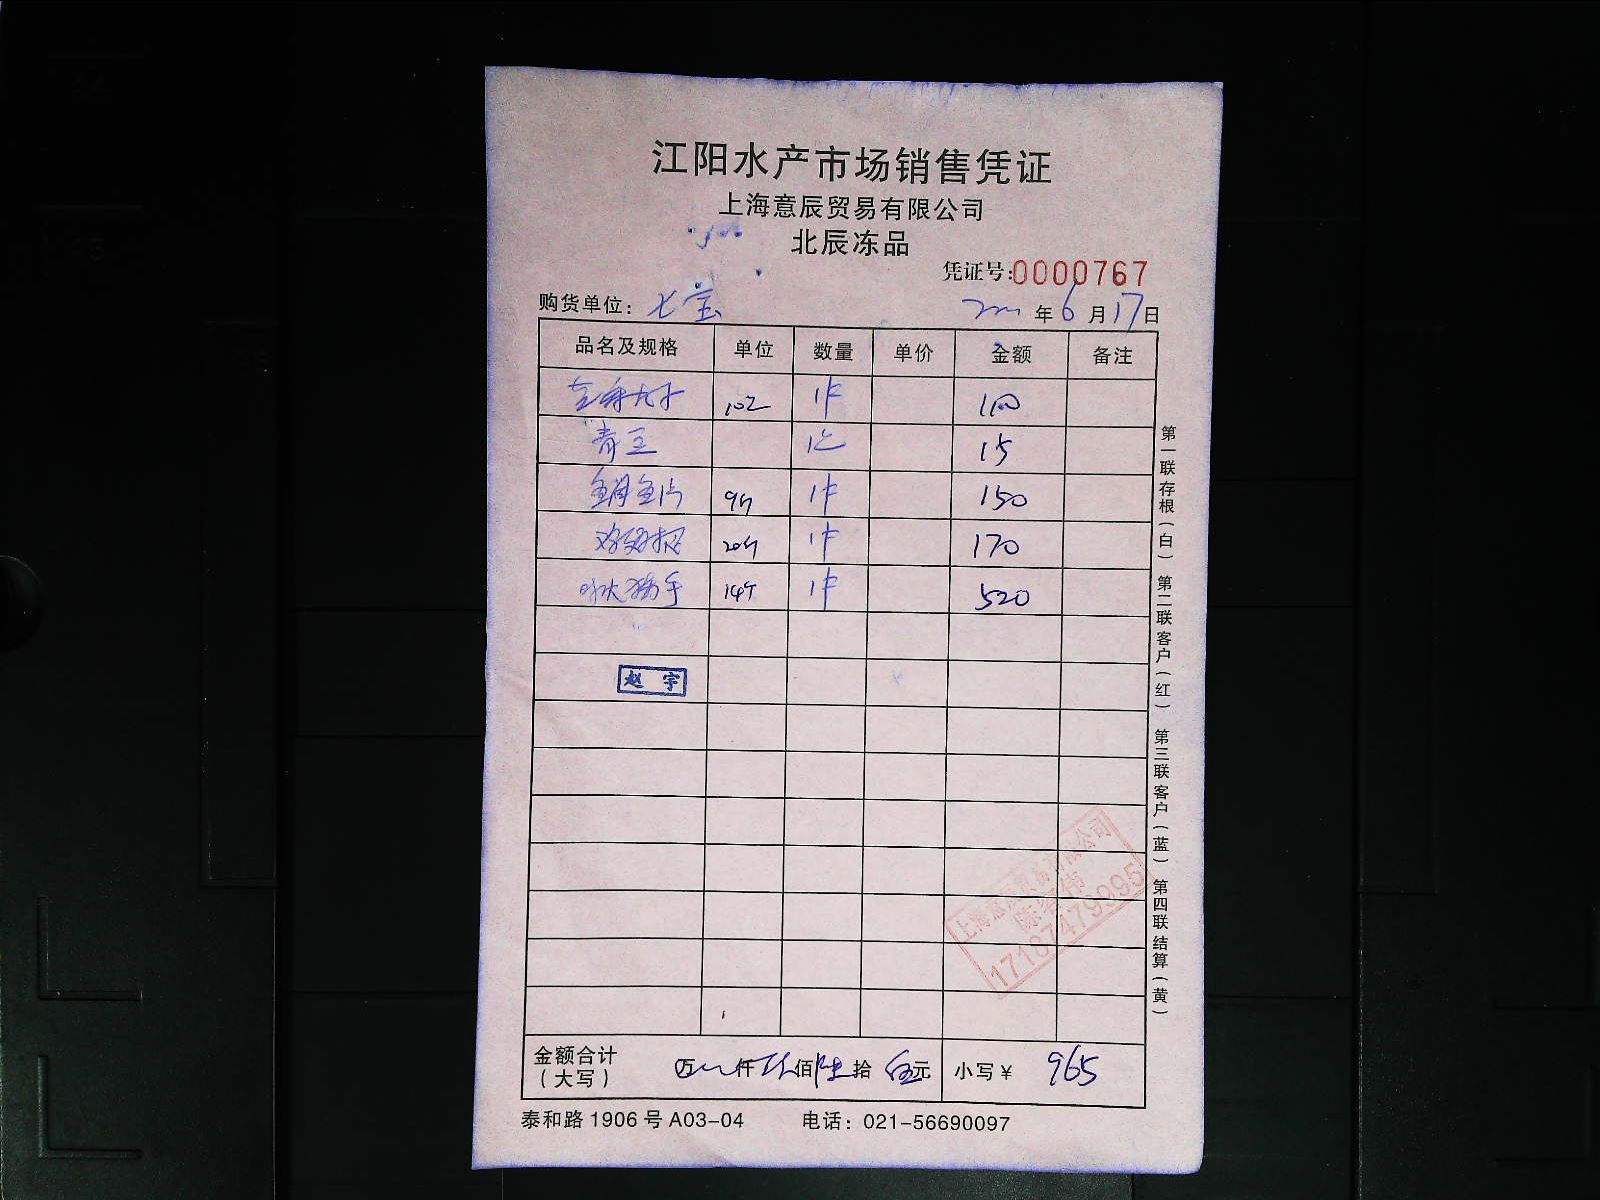 江阳水产市场销售凭证
上海意辰贸易有限公司
北辰冻品
凭证号:0000767
购货单位：七宝 年6月17日
品名及规格 单位 数量 单价 金额 备注
1件 110
青豆 15
鲷鱼片 9斤 1件 150
鸡翅根 20斤 1件 170
猪手 14斤 1件 520
赵宇
上海意辰贸易有限公司
17187479995
金额合计（大写） 万 仟玖佰陆拾伍元 小写￥ 965
泰和路1906号A03-04 电话：021-56690097
第一联存根（白） 第二联客户（红） 第三联客户（蓝） 第四联结算（黄）